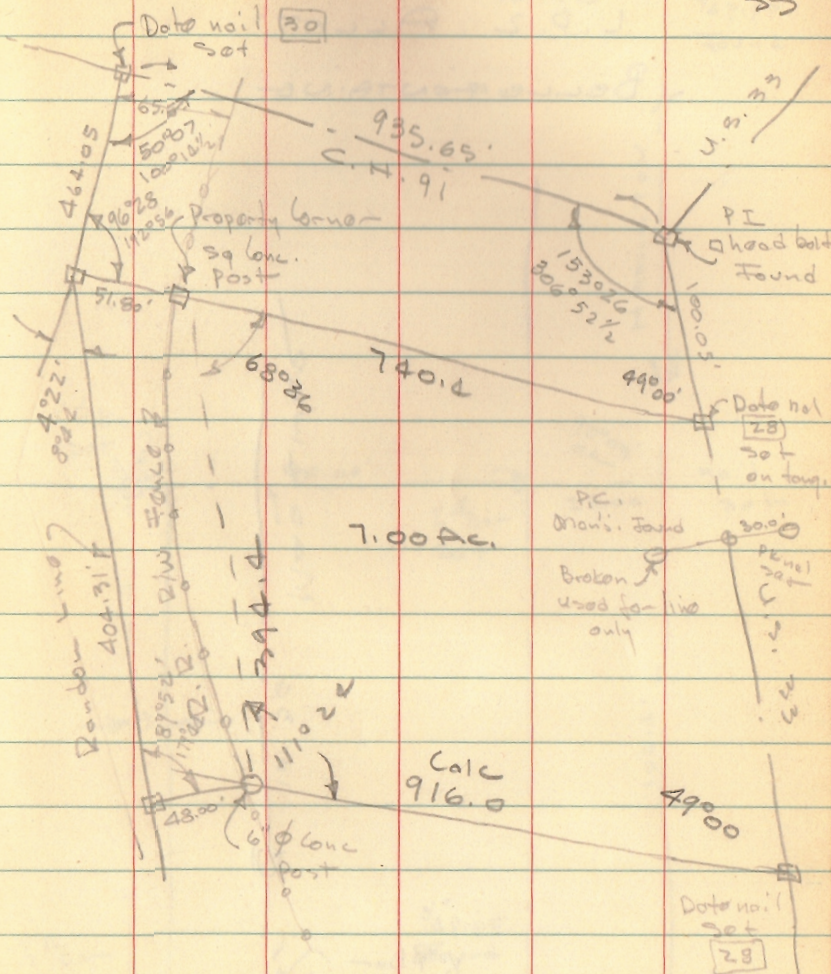 Date nail 30
Set
464.05
65.
50°07
100°14½
935.65'
C. H. 91
U.S. 33
96°28
192°56
Property Corner
sq Conc.
Post
PI
□ head bolt
Found
153°26
306°52½
100.05'
51.80'
68°36
740.4
49°00'
Date nal
28
Set
on tang.
4°22'
R/W Fence
7.00 Ac.
P.C.
Mon's. Found
30.0'
PK nal
Set
Broken
used for line
only
U.S. 33
Random Line
404.31'
394.4
89°52'
111°24
Calc
916.0
49°00
48.00'
6" Φ Conc
Post
Date nail
Set
28